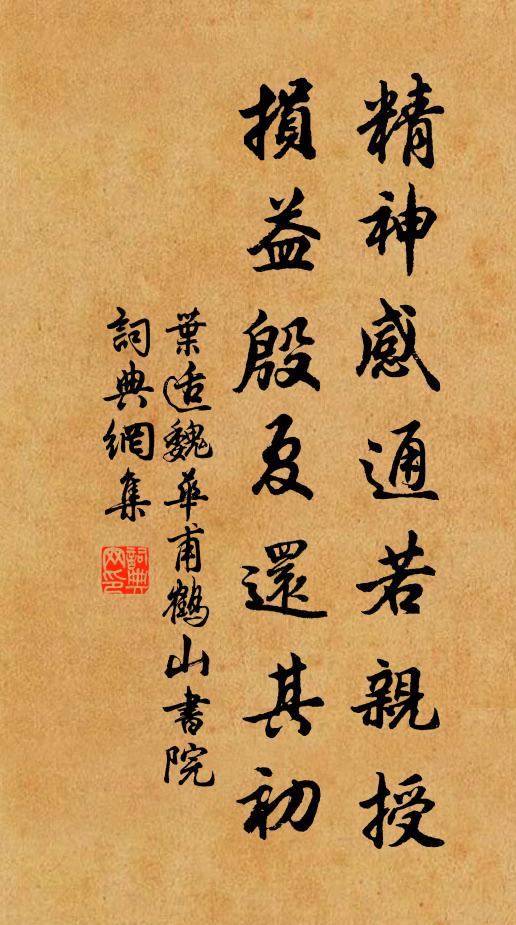 精神感通若親授
損益殷夏還其初
葉适魏華甫鶴山書院
詞典網集
詞典
網印